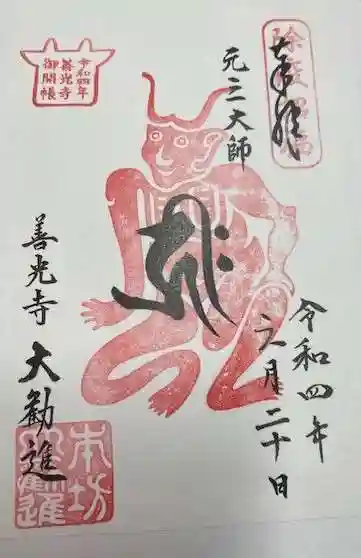 奉拝
元三大師
令和四年
善光寺
御開帳
善光寺
大勧進
令和四年
六月二十日
本坊
大勧進